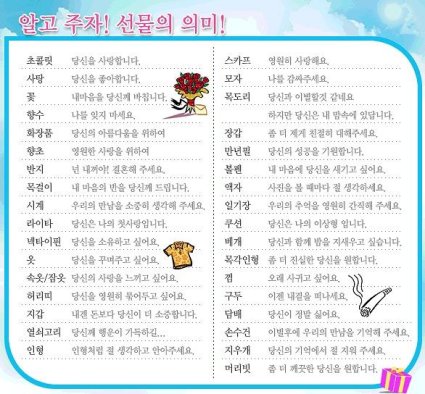 알고 주자! 선물의 의미!
초콜릿 당신을 사랑합니다.
사탕 당신을 좋아합니다.
꽃 내마음을 당신께 바칩니다.
향수 나를 잊지 마세요.
화장품 당신의 아름다움을 위하여
향초 영원한 사랑을 위하여
반지 넌 내꺼야! 결혼해 주세요.
목걸이 내 마음의 반을 당신께 드립니다.
시계 우리의 만남을 소중히 생각해 주세요.
라이타 당신은 나의 첫사랑입니다.
넥타이핀 당신을 소유하고 싶어요.
옷 당신을 꾸며주고 싶어요.
속옷/잠옷 당신의 사랑을 느끼고 싶어요.
허리띠 당신을 영원히 묶어두고 싶어요.
지갑 내겐 돈보다 당신이 더 소중합니다.
열쇠고리 당신께 행운이 가득하길...
인형 인형처럼 절 생각하고 안아주세요.
스카프 영원히 사랑해요.
모자 나를 감싸주세요.
목도리 당신과 이별할것 같네요
하지만 당신은 내 맘속에 있답니다.
장갑 좀 더 제게 친절히 대해주세요.
만년필 당신의 성공을 기원합니다.
볼펜 내 마음에 당신을 새기고 싶어요.
액자 사진을 볼 때마다 절 생각하세요.
일기장 우리의 추억을 영원히 간직해 주세요.
쿠션 당신은 나의 이상형 입니다.
베개 당신과 함께 밤을 지새우고 싶습니다.
목각인형 좀 더 진실한 당신을 원합니다.
껌 오래 사귀고 싶어요.
구두 이젠 내곁을 떠나세요.
담배 당신이 정말 싫어요.
손수건 이별후에 우리의 만남을 기억해 주세요.
지우개 당신의 기억에서 절 지워 주세요.
머리빗 좀 더 깨끗한 당신을 원합니다.